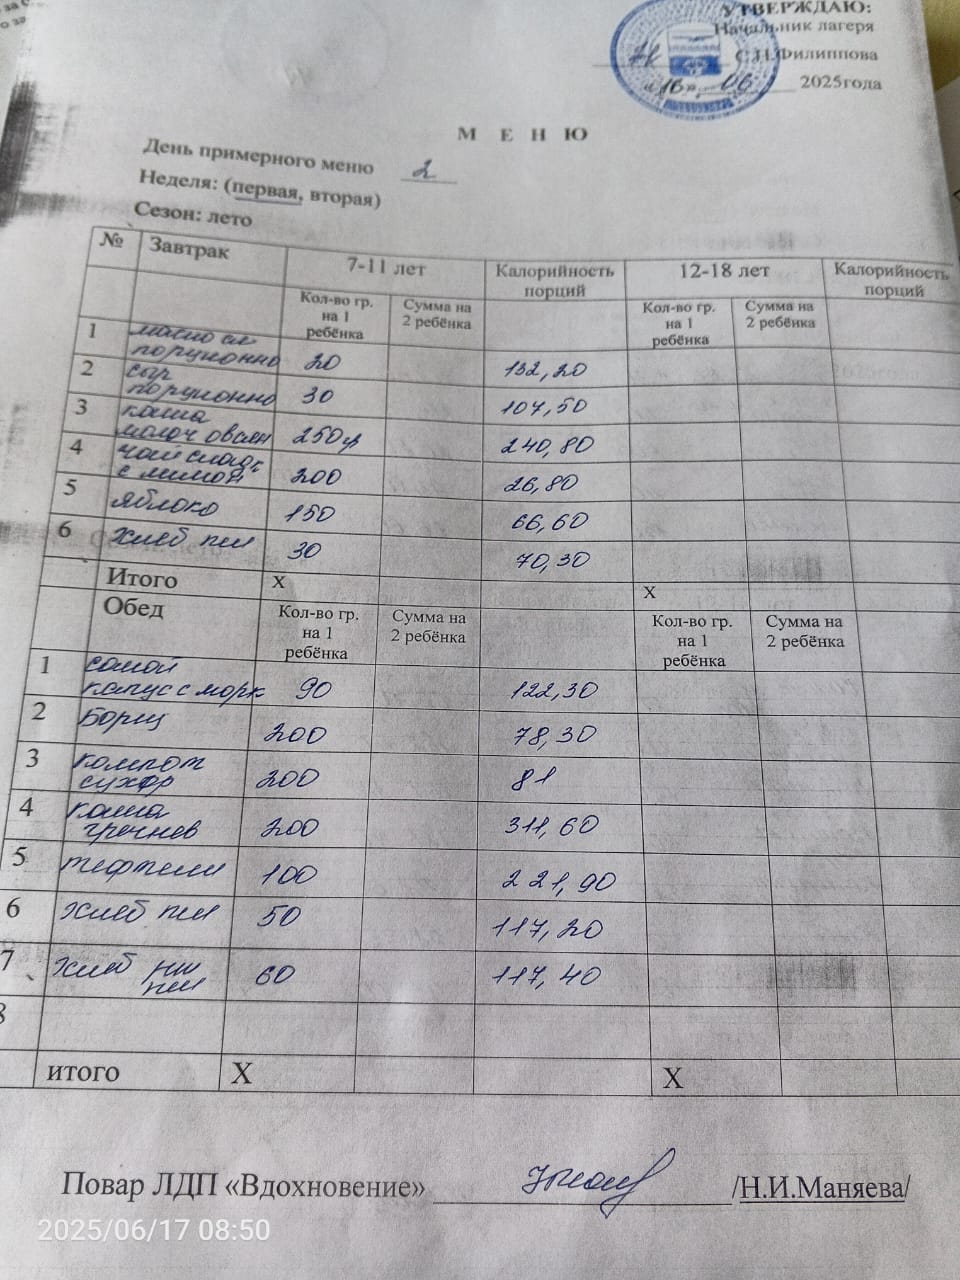 УТВЕРЖДАЮ:
Начальник лагеря
С.Н.Филиппова
«16» 06 2025года
М Е Н Ю
День примерного меню 2
Неделя: (первая, вторая)
Сезон: лето
№ Завтрак 7-11 лет Калорийность порций 12-18 лет Калорийность порций
Кол-во гр. на 1 ребёнка Сумма на 2 ребёнка Кол-во гр. на 1 ребёнка Сумма на 2 ребёнка
1 масло сл порционно 20 132,20
2 сыр порционно 30 107,50
3 каша молоч овсян 250гр 240,80
4 чай сладк с лимон 200 26,80
5 яблоко 150 66,60
6 хлеб пш 30 70,30
Итого X X
Обед Кол-во гр. на 1 ребёнка Сумма на 2 ребёнка Кол-во гр. на 1 ребёнка Сумма на 2 ребёнка
1 капус с морк 90 122,30
2 Борщ 200 78,30
3 компот сухфр 200 81
4 каша гречнев 200 311,60
5 тефтели 100 221,90
6 хлеб пш 50 117,20
7 хлеб 60 117,40
8
итого X X
Повар ЛДП «Вдохновение» /Н.И.Маняева/
2025/06/17 08:50